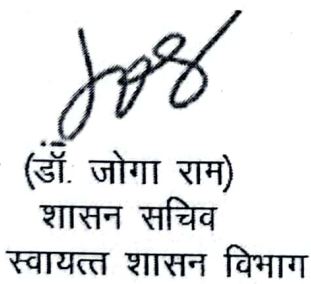 (डॉ. जोगा राम)
शासन सचिव
स्वायत्त शासन विभाग